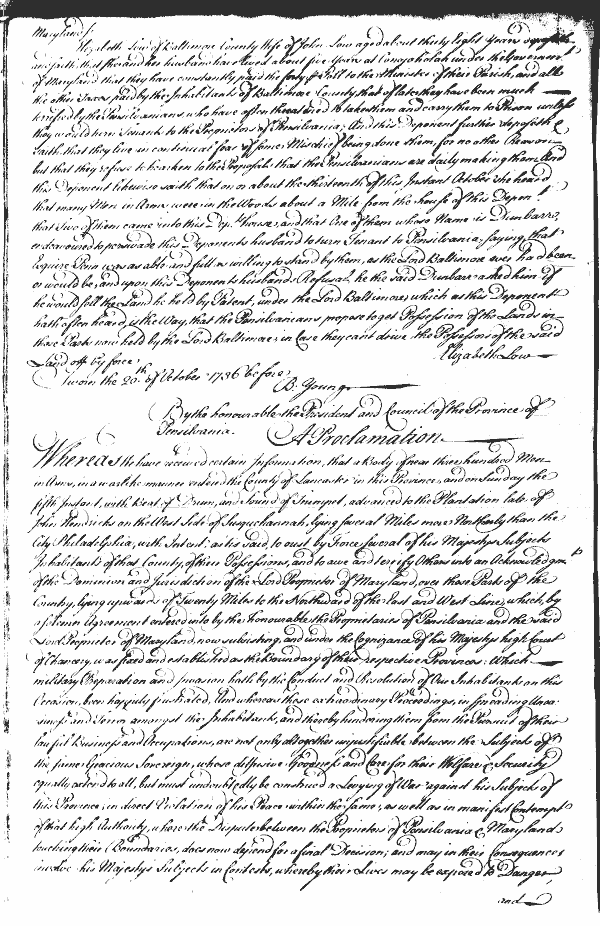 Maryland ss.
Elizabeth Low of Baltimore County Wife of John Low aged about thirty Eight Years
and saith, that she and her husband have lived about five Years at Conejoholah under the Government
of Maryland that they have constantly paid the forty & Poll to the Minister of their Parish, and all
the other Taxes paid by the Inhabitants of Baltimore County, that of late they have been much
terrifyed by the Pensilvanians, who have often threatned to take them and carry them to Prison unless
they would turn Tenants to the Proprietors of Pensilvania; And this Deponent further deposeth &
Saith, that they live in continual fear of some Mischief being done them, for no other Reason
but that they refuse to hearken to the Proposals that the Pensilvanians are daily making them. And
this Deponent likewise saith that on or about the thirteenth of this Instant October She heard
that many Men in Arms were in the Woods about a Mile from the house of this Depon.t
that Two of them came into this Dep.ts House, and that One of them whose Name is Dunbarr,
endeavoured to perswade this Deponents husband to turn Tenant to Pensilvania, saying that
Esquire Penn was as able and full as willing to stand by them, as the Lord Baltimore ever had been
or would be, and upon this Deponents husbands Refusal, he the said Dunbarr asked him if
he would sell the Land he held by Patent, under the Lord Baltimore, which as this Deponent
hath often heard, is the Way, that the Pensilvanians propose to get Possession of the Lands in
those Parts now held by the Lord Baltimore, in Case they cant drive the Possessors of the said
Land off by force. Elizabeth Low
Sworn the 20th of October 1736 before,
B. Young
By the honourable the President and Council of the Province of
Pensilvania. A Proclamation.
Whereas We have received certain Information, that a Body of near three hundred Men
in Arms, in a warlike manner entered the County of Lancaster in this Province, and on Sunday the
fifth Instant, with Beat of Drum, and Sound of Trumpet, advanced to the Plantation late of
John Hendricks on the West Side of Susquehannah, lying several Miles more Northerly than the
City Philadelphia, with Intent, as its said, to oust by Force several of his Majestys Subjects
Inhabitants of that County, of their Possessions, and to awe and terrify Others into an Acknowledgm.t
of the Dominion and Jurisdiction of the Lord Proprietor of Maryland, over those Parts of the
Country, lying upwards of Twenty Miles to the Northward of the East and West Line, which, by
a solemn Agreement entered into by the Honourable the Proprietaries of Pensilvania and the said
Lord Proprietor of Maryland, now subsisting, and under the Cognizance of his Majestys high Court
of Chancery, was fixed and established as the Boundary of their respective Provinces: Which
military Preparation and Invasion hath by the Conduct and Resolution of Our Inhabitants on this
Occasion been happily frustrated. And whereas these extraordinary Proceedings, in spreading
and Terror amongst the Inhabitants, and thereby hindering them from the Pursuit of their
lawful Business and Occupations, are not only altogether unjustifiable between the Subjects of
the same Gracious Sovereign, whose diffusive Goodness and Care for their Welfare & Security
equally extend to all, but must undoubtedly be construed a Levying of War against his Subjects of
this Province, in direct Violation of his Peace within the same, as well as in manifest Contempt
of that high Authority, where the Dispute between the Proprietors of Pensilvania & Maryland
touching their Boundaries, does now depend for a final Decision; and may in their Consequences
involve his Majestys Subjects in Contests, whereby their Lives may be exposed to Danger,
and